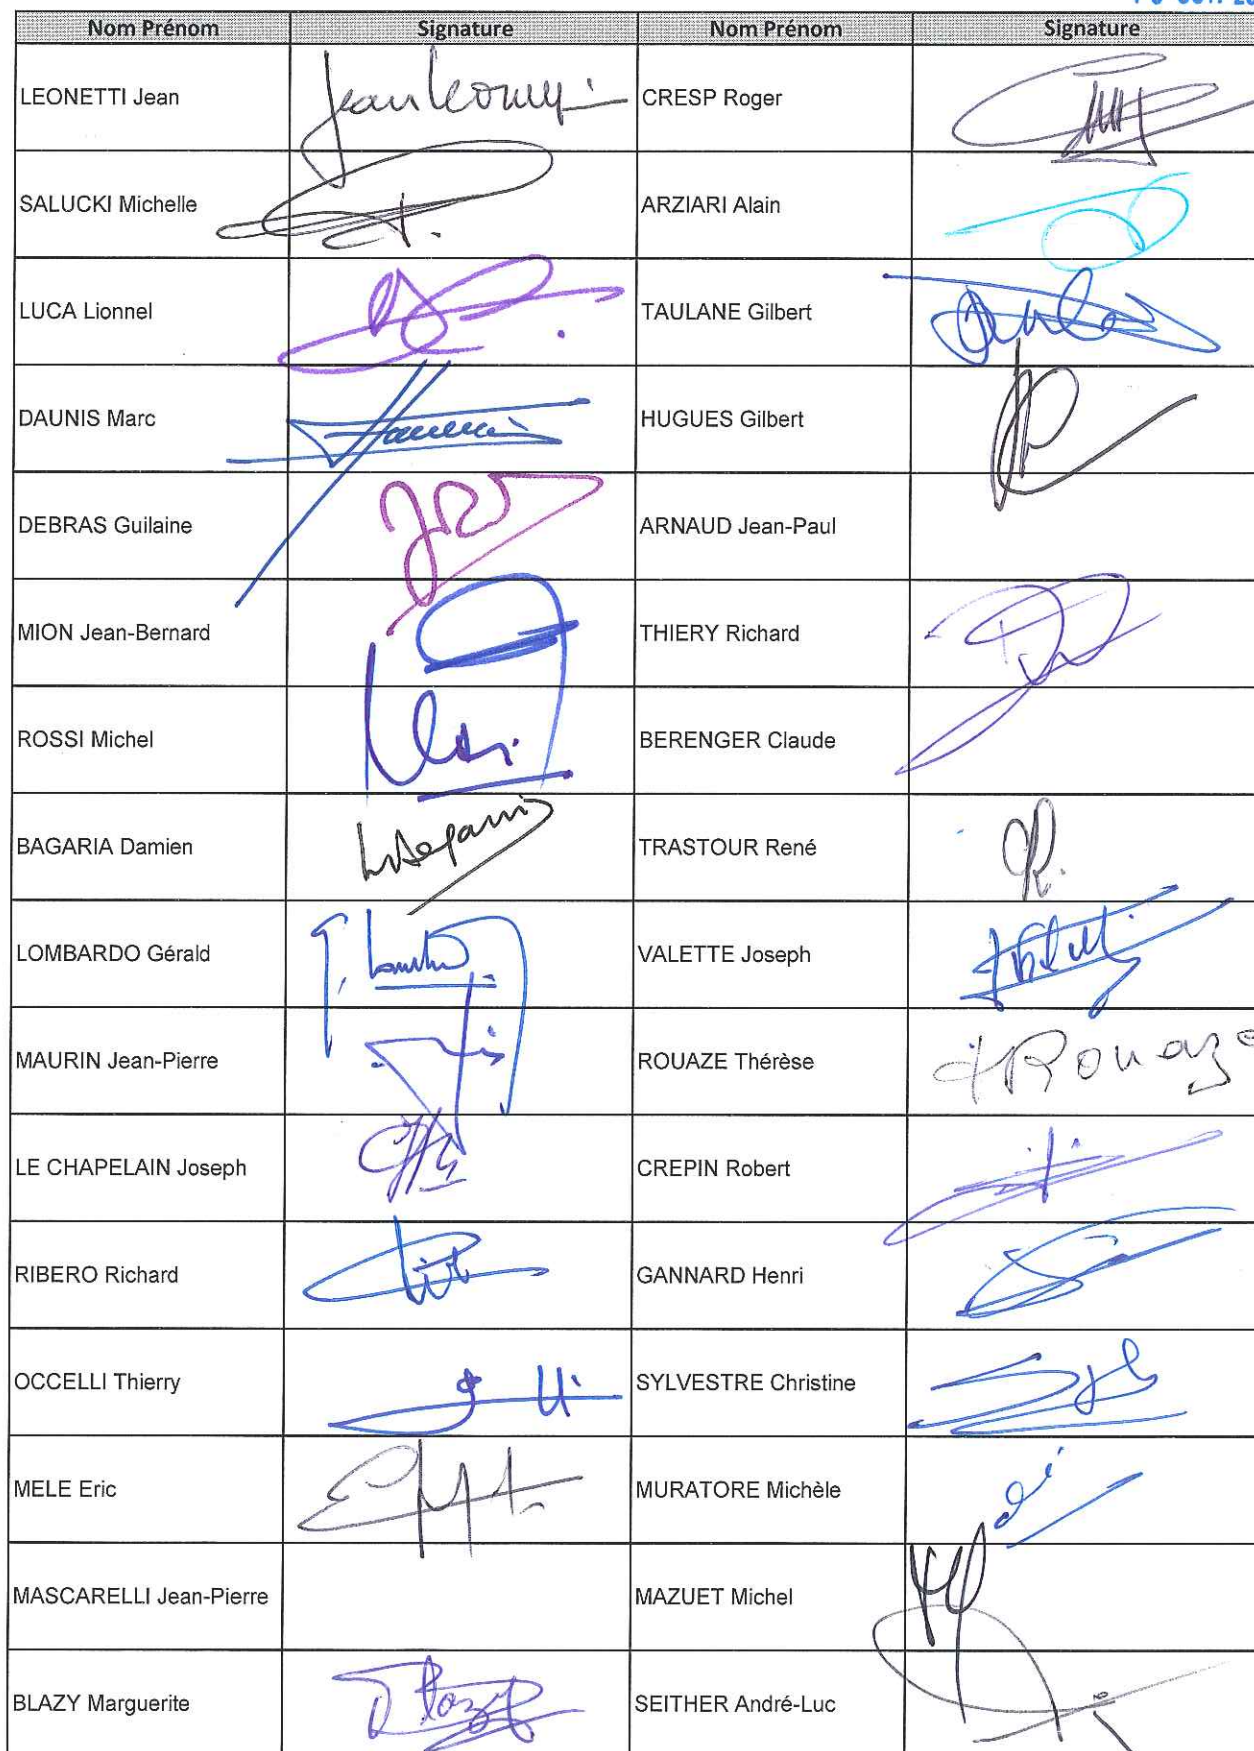 Nom Prénom Signature Nom Prénom Signature
LEONETTI Jean CRESP Roger
SALUCKI Michelle ARZIARI Alain
LUCA Lionnel TAULANE Gilbert
DAUNIS Marc HUGUES Gilbert
DEBRAS Guilaine ARNAUD Jean-Paul
MION Jean-Bernard THIERY Richard
ROSSI Michel BERENGER Claude
BAGARIA Damien TRASTOUR René
LOMBARDO Gérald VALETTE Joseph
MAURIN Jean-Pierre ROUAZE Thérèse
LE CHAPELAIN Joseph CREPIN Robert
RIBERO Richard GANNARD Henri
OCCELLI Thierry SYLVESTRE Christine
MELE Eric MURATORE Michèle
MASCARELLI Jean-Pierre MAZUET Michel
BLAZY Marguerite SEITHER André-Luc